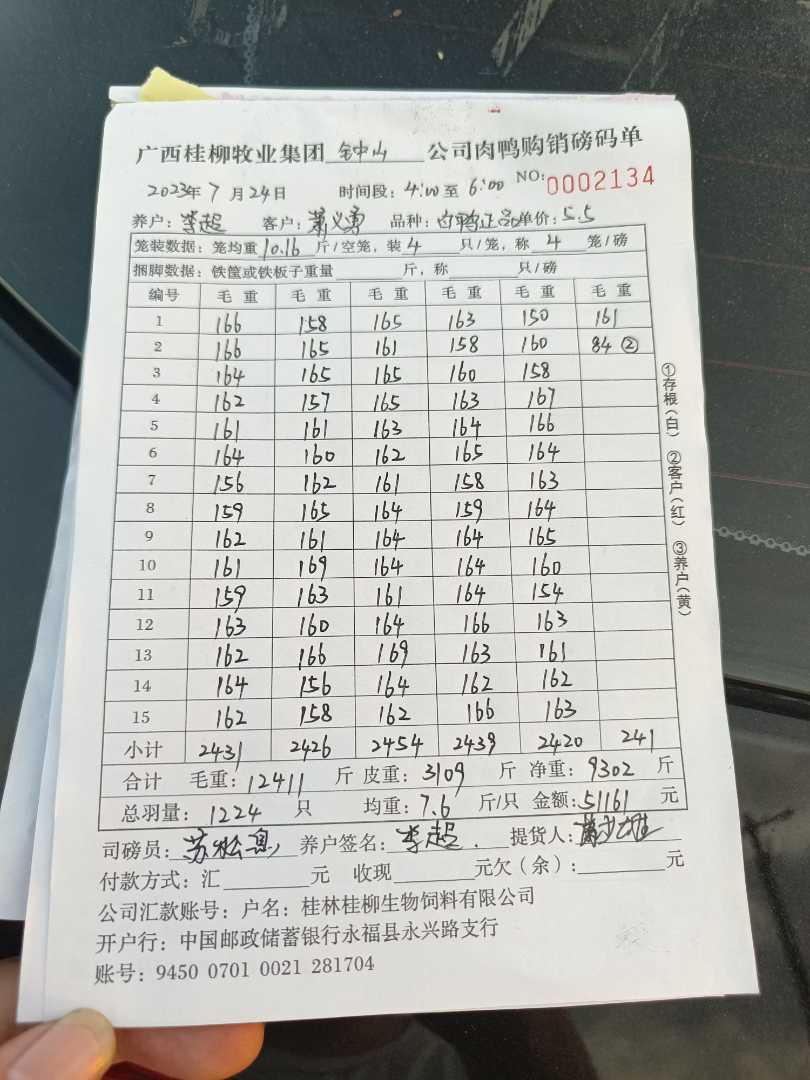 广西桂柳牧业集团 钟山 公司肉鸭购销磅码单
2023年 7 月 24日 时间段: 4:00 至 6:00 NO: 0002134
养户: 李超 客户: 萧义勇 品种: 白鸭正品 单价: 5.5
笼装数据: 笼均重 10.16 斤/空笼, 装 4 只/笼, 称 4 笼/磅
捆脚数据: 铁筐或铁板子重量 斤, 称 只/磅
编号 毛重 毛重 毛重 毛重 毛重 毛重
1 166 158 165 163 150 161
2 166 165 161 158 160 84 ②
3 164 165 165 160 158
4 162 157 165 163 167
5 161 161 163 164 166
6 164 160 162 165 164
7 156 162 161 158 163
8 159 165 164 159 164
9 162 161 164 164 165
10 161 169 164 164 160
11 159 163 161 164 154
12 163 160 164 166 163
13 162 166 169 163 161
14 164 156 164 162 162
15 162 158 162 166 163
小计 2431 2426 2454 2439 2420 241
合计 毛重: 12411 斤 皮重: 3109 斤 净重: 9302 斤
总羽量: 1224 只 均重: 7.6 斤/只 金额: 51161 元
司磅员: 苏松 养户签名: 李超 提货人:
付款方式: 汇 元 收现 元欠(余): 元
公司汇款账号: 户名: 桂林桂柳生物饲料有限公司
开户行: 中国邮政储蓄银行永福县永兴路支行
账号: 9450 0701 0021 281704
①存根(白) ②客户(红) ③养户(黄)